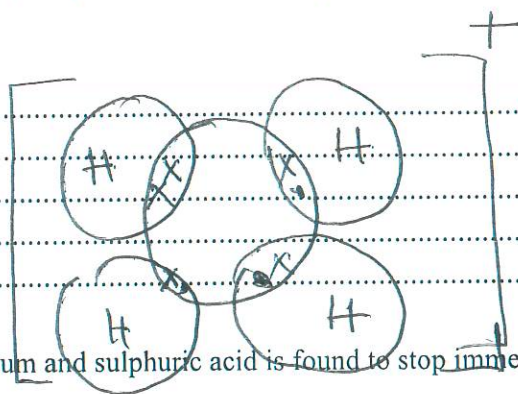 +
H H
X X
X X
X X
H H
um and sulphuric acid is found to stop imme